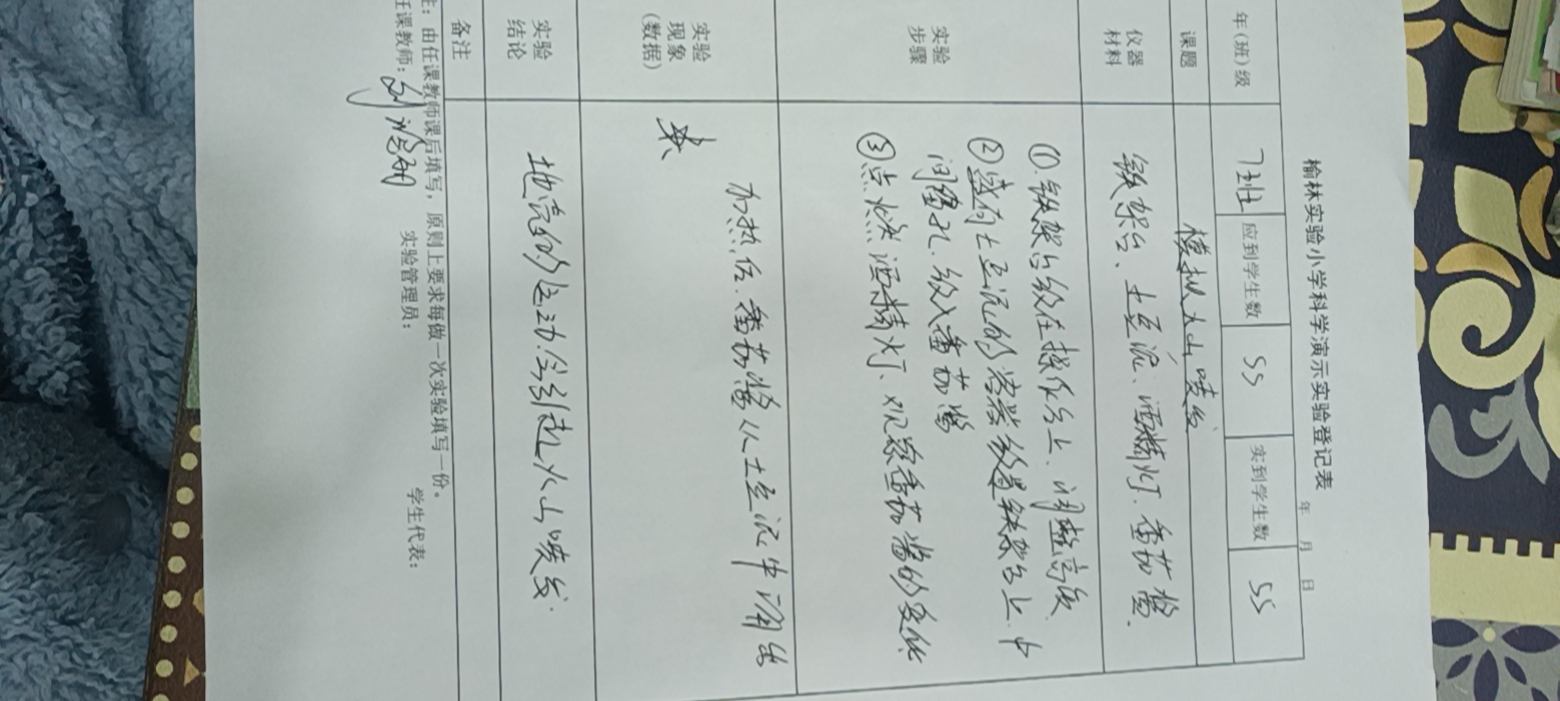 榆林实验小学科学演示实验登记表
年 月 日
年(班)级 7班 应到学生数 55 实到学生数 55
课题 模拟火山喷发
仪器材料 铁架台、土豆泥、酒精灯、番茄酱.
实验步骤 ① 铁架台放在操作台上、调整高度
② 盛有土豆泥的容器放置铁架台上.中
间留孔、放入番茄酱
③ 点燃酒精灯、观察番茄酱的变化
实验现象(数据) 加热后番茄酱从土豆泥中涌出
实验结论 地壳的运动会引起火山喷发.
备注
注：由任课教师课后填写，原则上要求每做一次实验填写一份。
任课教师： 实验管理员： 学生代表：